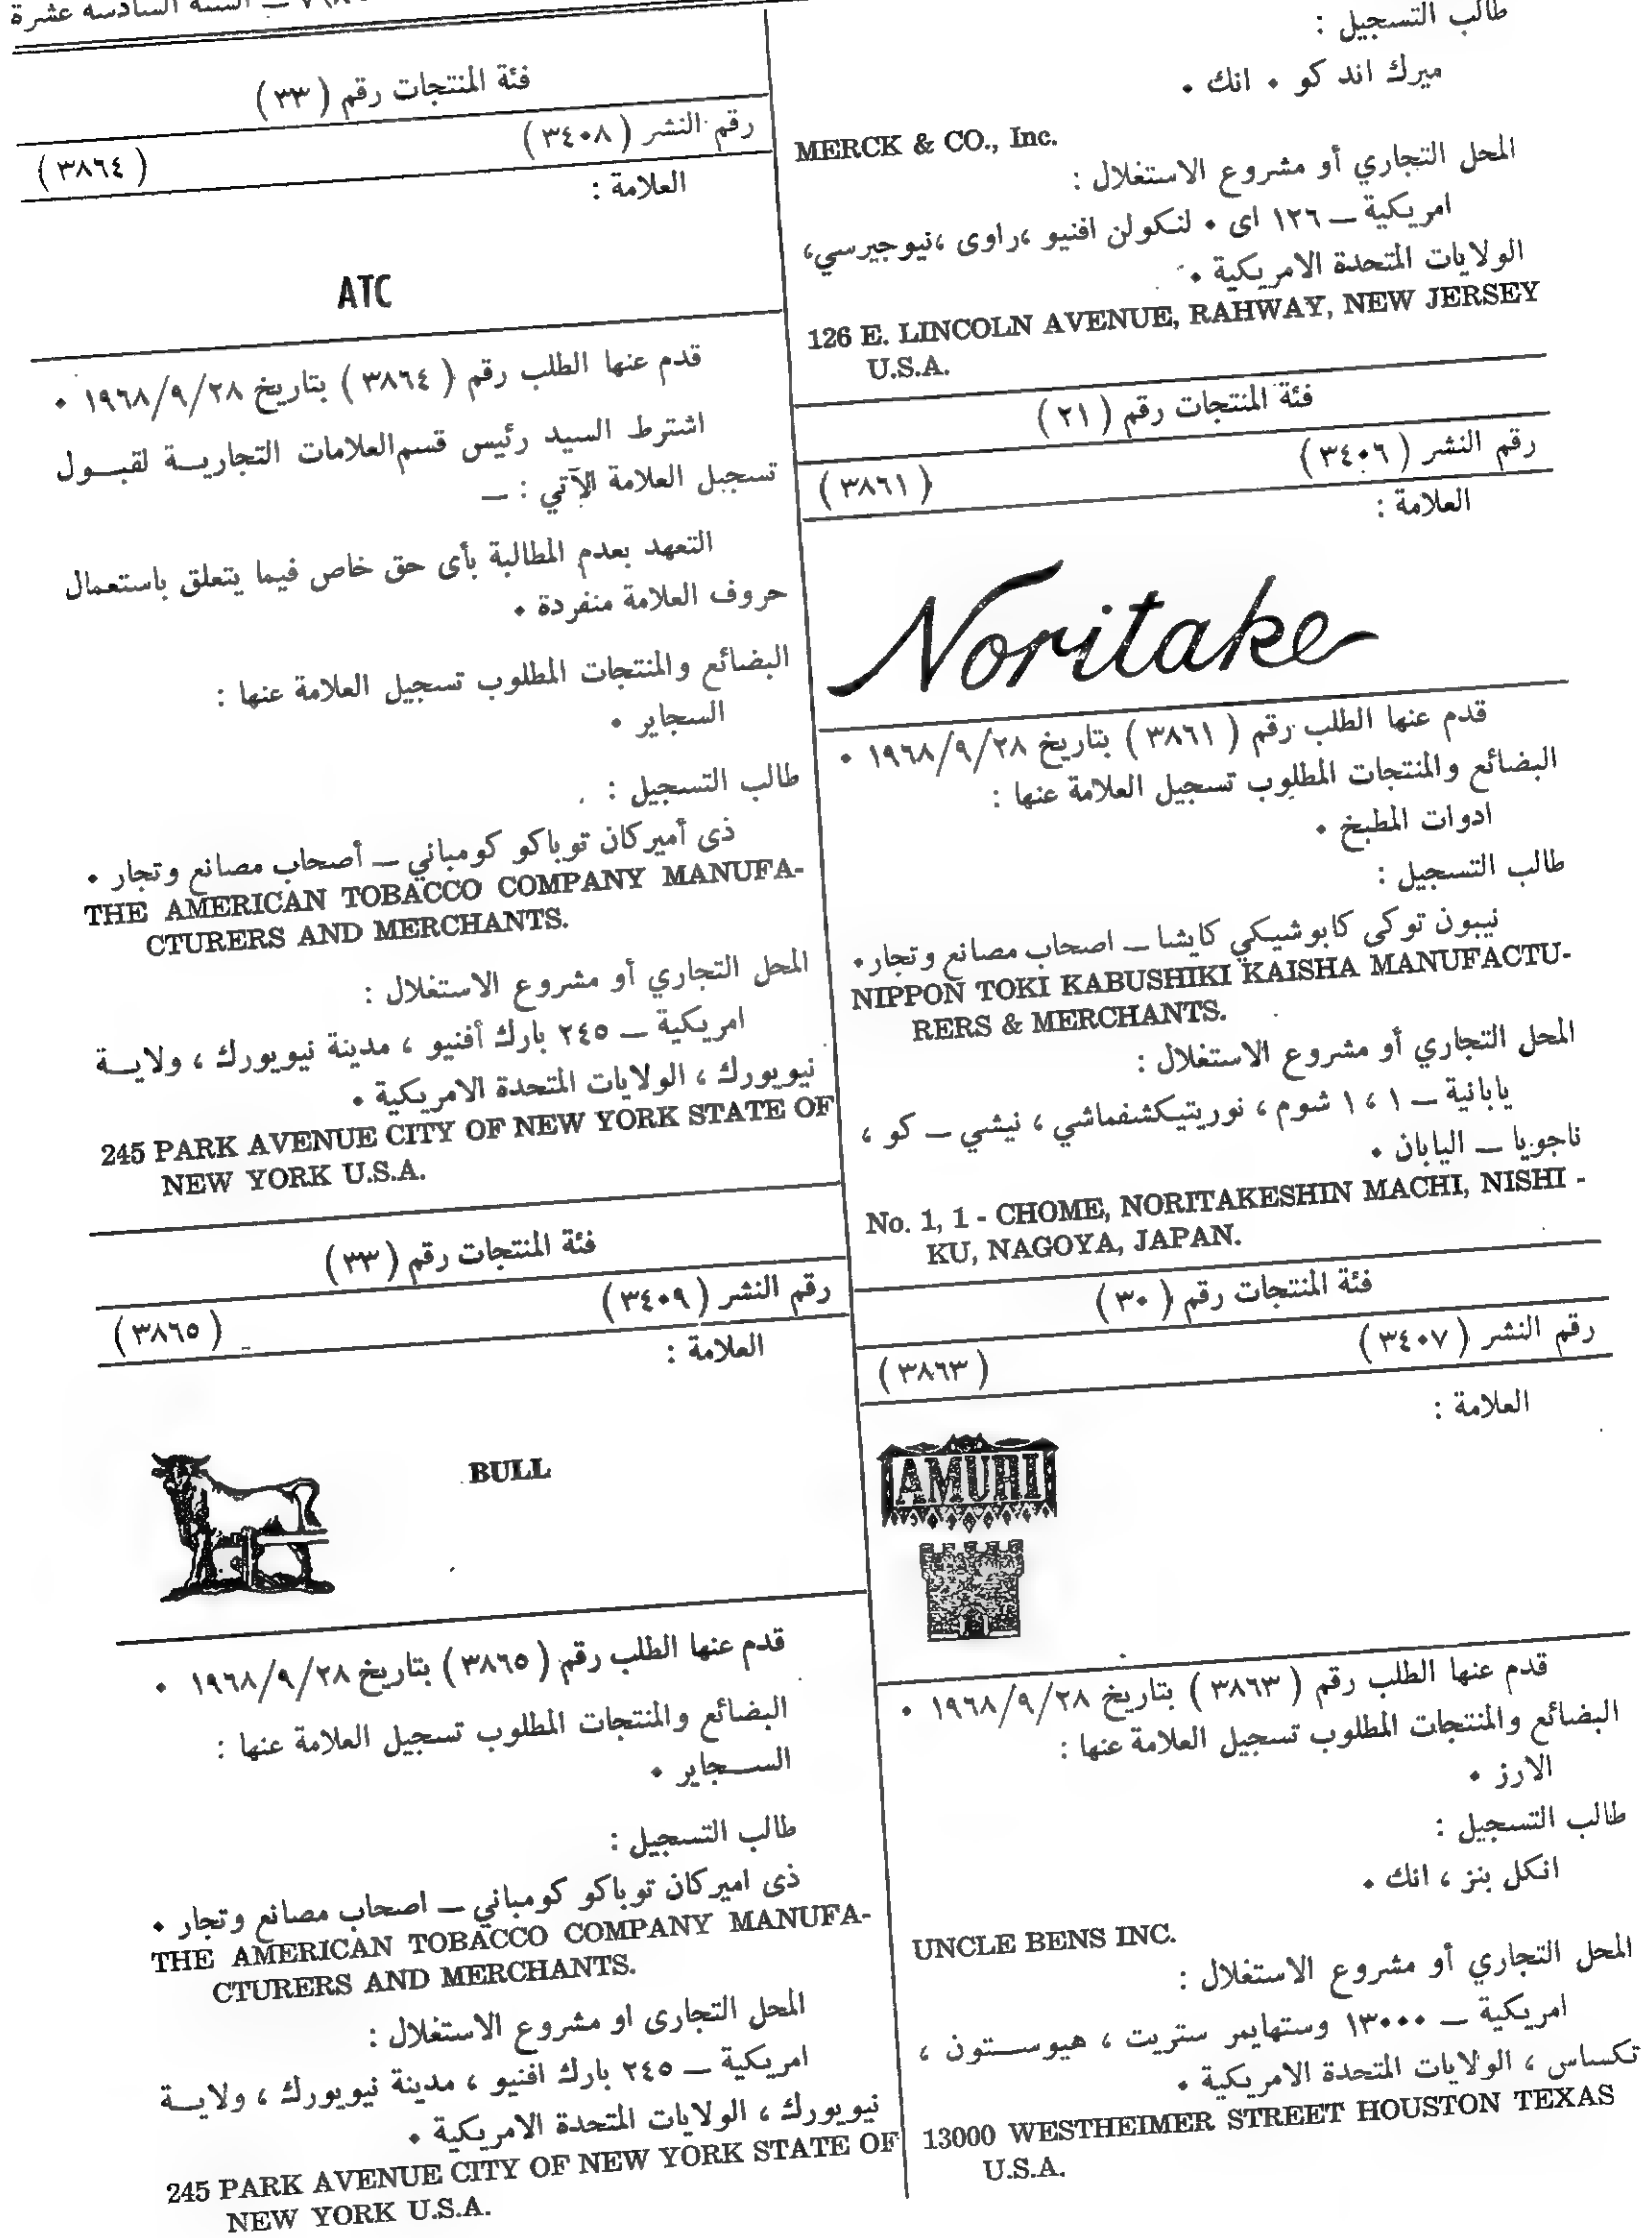 السنة السادسة عشرة
طالب التسجيل :
ميرك اند كو ٠ انك ٠
MERCK & CO., Inc.
المحل التجاري أو مشروع الاستغلال :
امريكية — ١٢٦ اى ٠ لنكولن افنيو ،راوى ،نيوجيرسي،
الولايات المتحدة الامريكية ٠
126 E. LINCOLN AVENUE, RAHWAY, NEW JERSEY
U.S.A.
فئة المنتجات رقم (٢١)
رقم النشر (٣٤٠٦) (٣٨٦١)
العلامة :
Noritake
قدم عنها الطلب رقم (٣٨٦١) بتاريخ ١٩٦٨/٩/٢٨ ٠
البضائع والمنتجات المطلوب تسجيل العلامة عنها :
ادوات المطبخ ٠
طالب التسجيل :
نيبون توكى كابوشيكي كايشا — اصحاب مصانع وتجار٠
NIPPON TOKI KABUSHIKI KAISHA MANUFACTU-
RERS & MERCHANTS.
المحل التجاري أو مشروع الاستغلال :
يابانية — ١ ، ١ شوم ، نوريتيكشفماشي ، نيشي — كو ،
ناجويا — اليابان ٠
No. 1, 1 - CHOME, NORITAKESHIN MACHI, NISHI -
KU, NAGOYA, JAPAN.
فئة المنتجات رقم (٣٠)
رقم النشر (٣٤٠٧) (٣٨٦٣)
العلامة :
AMURI
قدم عنها الطلب رقم (٣٨٦٣) بتاريخ ١٩٦٨/٩/٢٨ ٠
البضائع والمنتجات المطلوب تسجيل العلامة عنها :
الارز ٠
طالب التسجيل :
انكل بنز ، انك ٠
UNCLE BENS INC.
المحل التجاري أو مشروع الاستغلال :
امريكية — ١٣٠٠٠ وستهايمر ستريت ، هيوستون ،
تكساس ، الولايات المتحدة الامريكية ٠
13000 WESTHEIMER STREET HOUSTON TEXAS
U.S.A.
فئة المنتجات رقم (٣٣)
رقم النشر (٣٤٠٨) (٣٨٦٤)
العلامة :
ATC
قدم عنها الطلب رقم (٣٨٦٤) بتاريخ ١٩٦٨/٩/٢٨ ٠
اشترط السيد رئيس قسم العلامات التجارية لقبول
تسجيل العلامة الآتي : —
التعهد بعدم المطالبة بأى حق خاص فيما يتعلق باستعمال
حروف العلامة منفردة ٠
البضائع والمنتجات المطلوب تسجيل العلامة عنها :
السجاير ٠
طالب التسجيل :
ذى أميركان توباكو كومباني — أصحاب مصانع وتجار ٠
THE AMERICAN TOBACCO COMPANY MANUFA-
CTURERS AND MERCHANTS.
المحل التجاري أو مشروع الاستغلال :
امريكية — ٢٤٥ بارك أفنيو ، مدينة نيويورك ، ولاية
نيويورك ، الولايات المتحدة الامريكية ٠
245 PARK AVENUE CITY OF NEW YORK STATE OF
NEW YORK U.S.A.
فئة المنتجات رقم (٣٣)
رقم النشر (٣٤٠٩) (٣٨٦٥)
العلامة :
BULL
قدم عنها الطلب رقم (٣٨٦٥) بتاريخ ١٩٦٨/٩/٢٨ ٠
البضائع والمنتجات المطلوب تسجيل العلامة عنها :
السجاير ٠
طالب التسجيل :
ذى اميركان توباكو كومباني — اصحاب مصانع وتجار ٠
THE AMERICAN TOBACCO COMPANY MANUFA-
CTURERS AND MERCHANTS.
المحل التجارى او مشروع الاستغلال :
امريكية — ٢٤٥ بارك افنيو ، مدينة نيويورك ، ولاية
نيويورك ، الولايات المتحدة الامريكية ٠
245 PARK AVENUE CITY OF NEW YORK STATE OF
NEW YORK U.S.A.